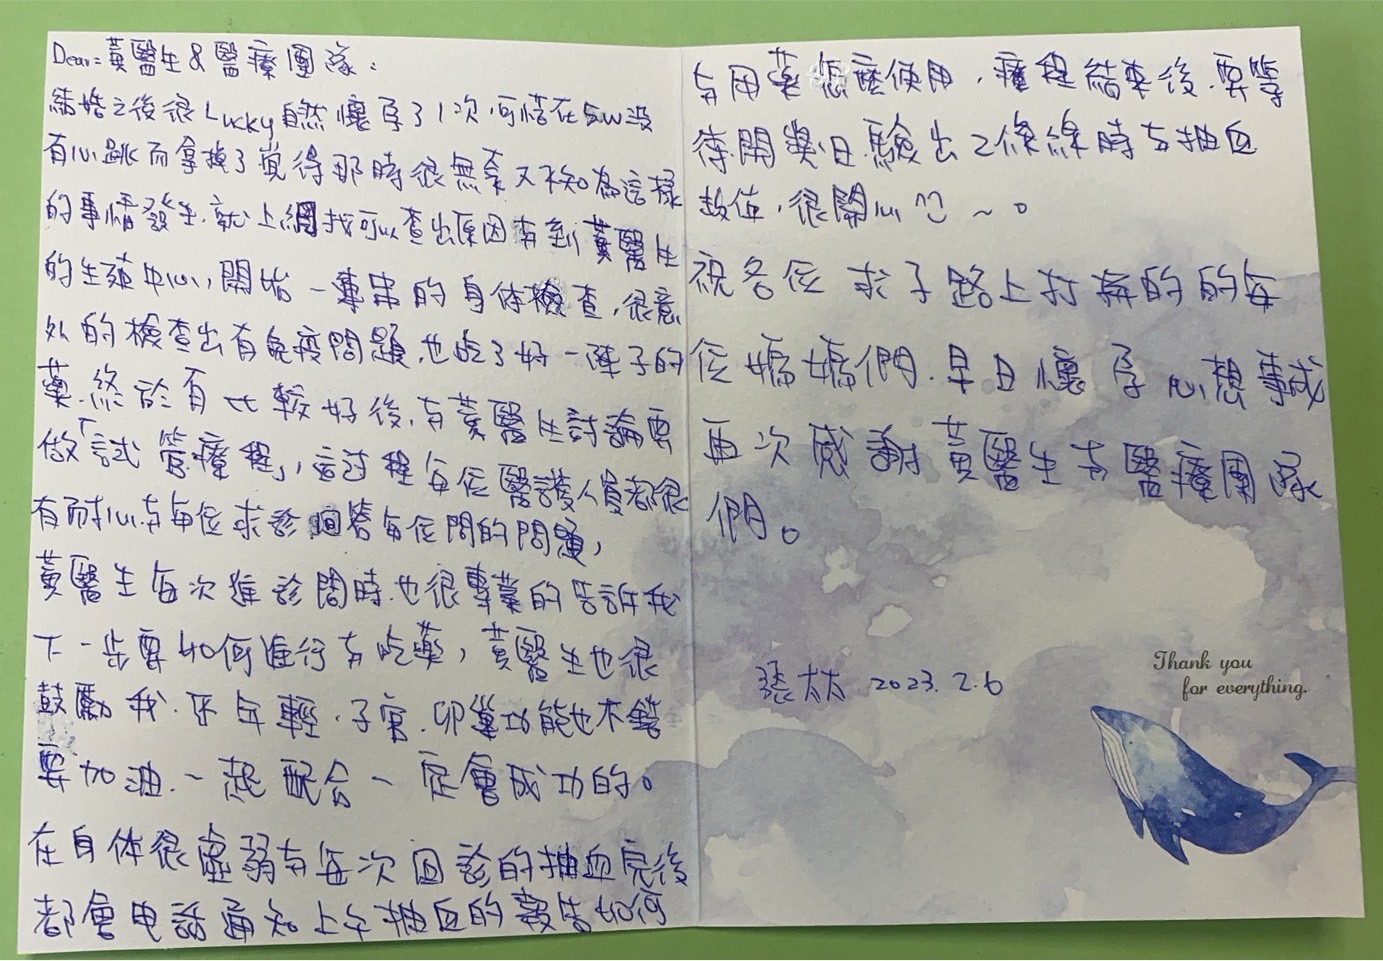 Dear: 黃醫生 & 醫療團隊:
結婚之後很Lucky自然懷孕了1次,可惜在5W沒
有心跳而拿掉了覺得那時很無奈又不知為這樣
的事情發生.就上網找可以查出原因有到黃醫生
的生殖中心,開始一連串的身体檢查,很意
外的檢查出有免疫問題.也吃了好一陣子的
藥.終於有比較好後,與黃醫生討論要
做「試管療程」,這过程每位醫護人員都很
有耐心与每位求診回答每位問的問題,
黃醫生每次進診間時.也很專業的告訴我
下一步要如何進行与吃藥,黃醫生也很
鼓勵我.年輕.子宮.卵巢功能也不錯
要加油.一起配合一定會成功的。
在身体很虛弱与每次回診的抽血完後
都會电話通知上午抽血的報告如何
与用藥怎麼使用,療程結束後.要等
待開獎日.驗出2條線時与抽血
数值,很開心^^ ~。
祝各位求子路上打拚的的每
位媽媽們.早日懷孕心想事成
再次感謝黃醫生与醫療團隊
們。
張太太 2023.2.6
Thank you
for everything.